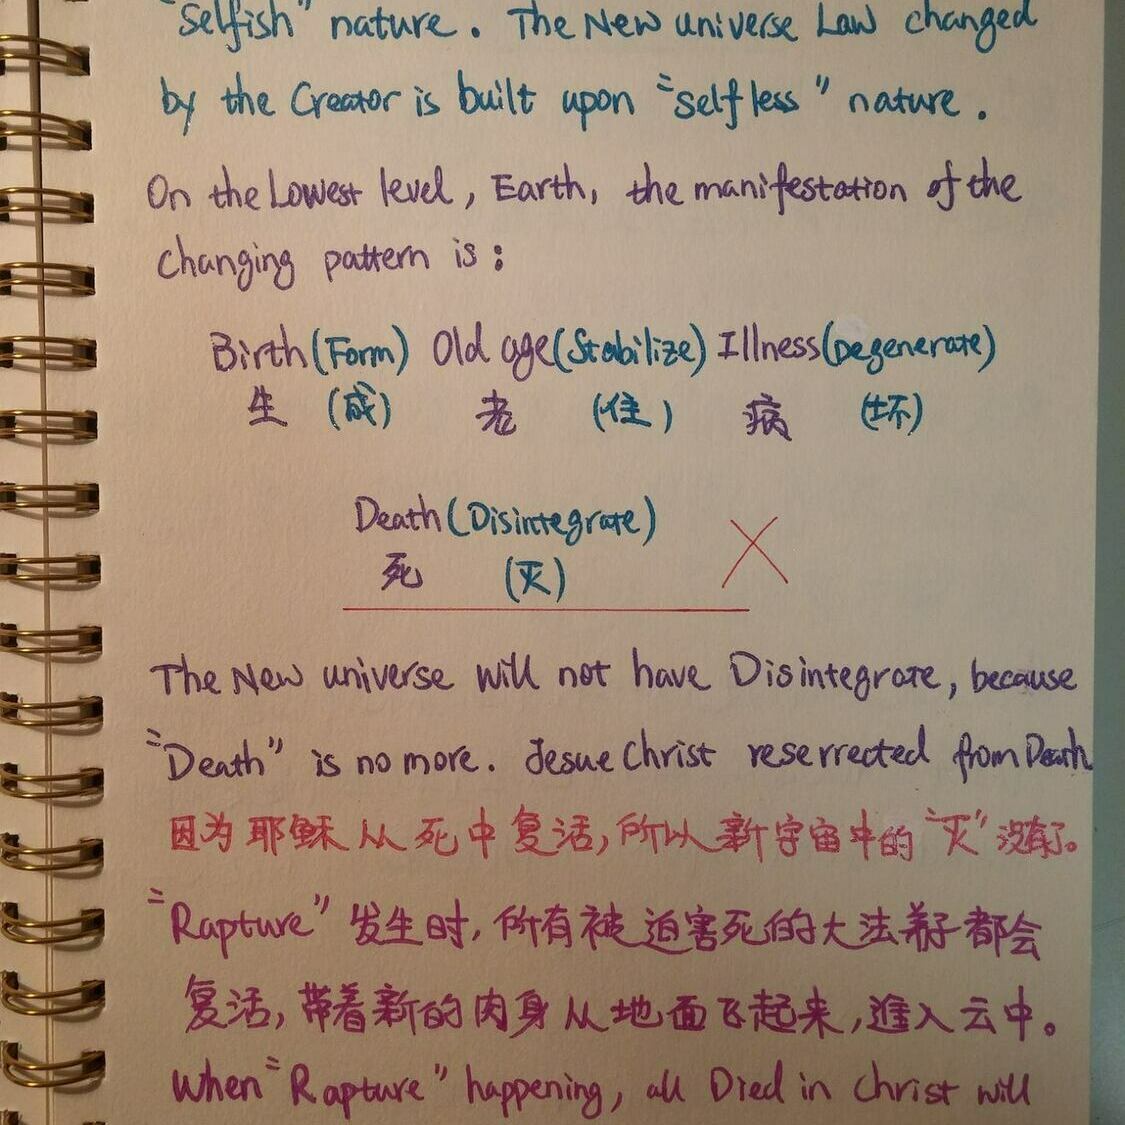 "Selfish" nature. The New universe Law changed
by the Creator is built upon "selfless" nature.
On the Lowest level, Earth, the manifestation of the
changing pattern is:
Birth(Form) Old age(Stabilize) Illness(Degenerate)
生 (成) 老 (住) 病 (坏)
Death(Disintegrate)
死 (灭)
The New universe will not have Disintegrate, because
"Death" is no more. Jesue Christ reserrected from Death
因为耶稣从死中复活,所以新宇宙中的"灭"没有了。
"Rapture" 发生时,所有被迫害死的大法弟子都会
复活,带着新的肉身从地面飞起来,進入云中。
When "Rapture" happening, all Died in Christ will